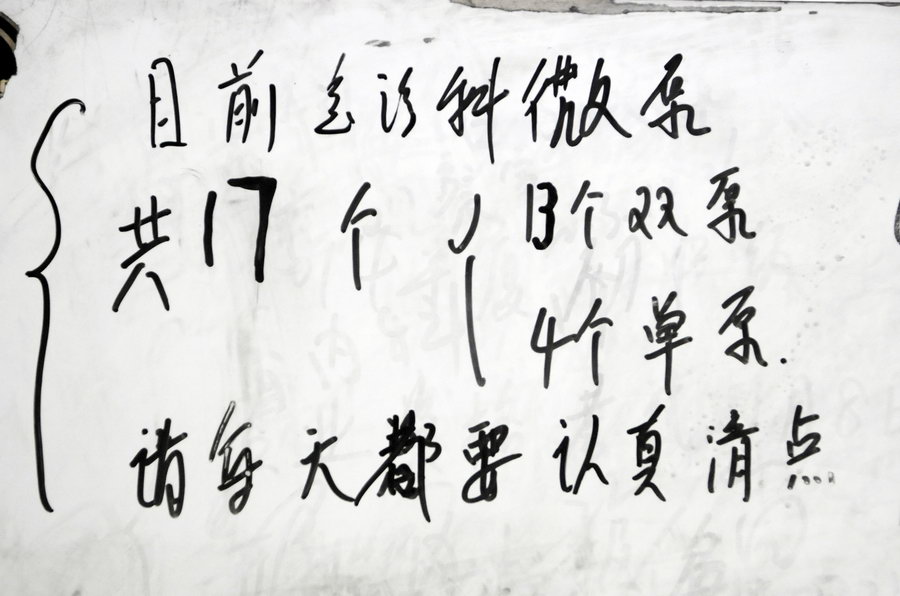 目前急诊科微泵
共17个 13个双泵
4个单泵.
请每天都要认真清点